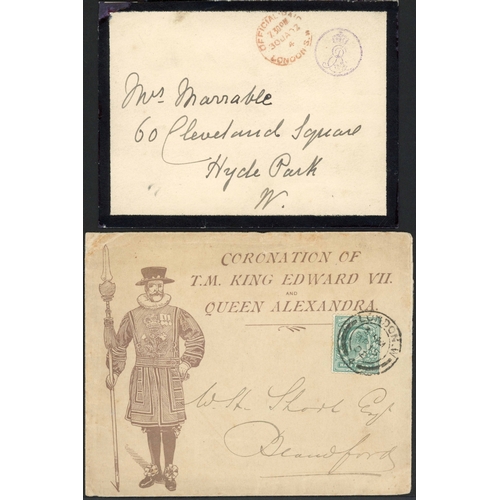 OFFICIAL PAID
7.30PM
30 JA 02
4
LONDON S.W.
Mrs Marrable
60 Cleveland Square
Hyde Park
W.
CORONATION OF
T.M. KING EDWARD VII.
AND
QUEEN ALEXANDRA.
LONDON.W.
W. H. Short Esq
Blandford